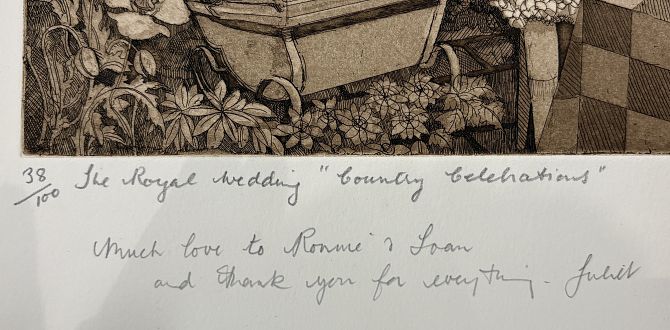 38/100 The Royal Wedding "Country Celebrations"
Much love to Ronnie & Joan
and thank you for everything - Juliet